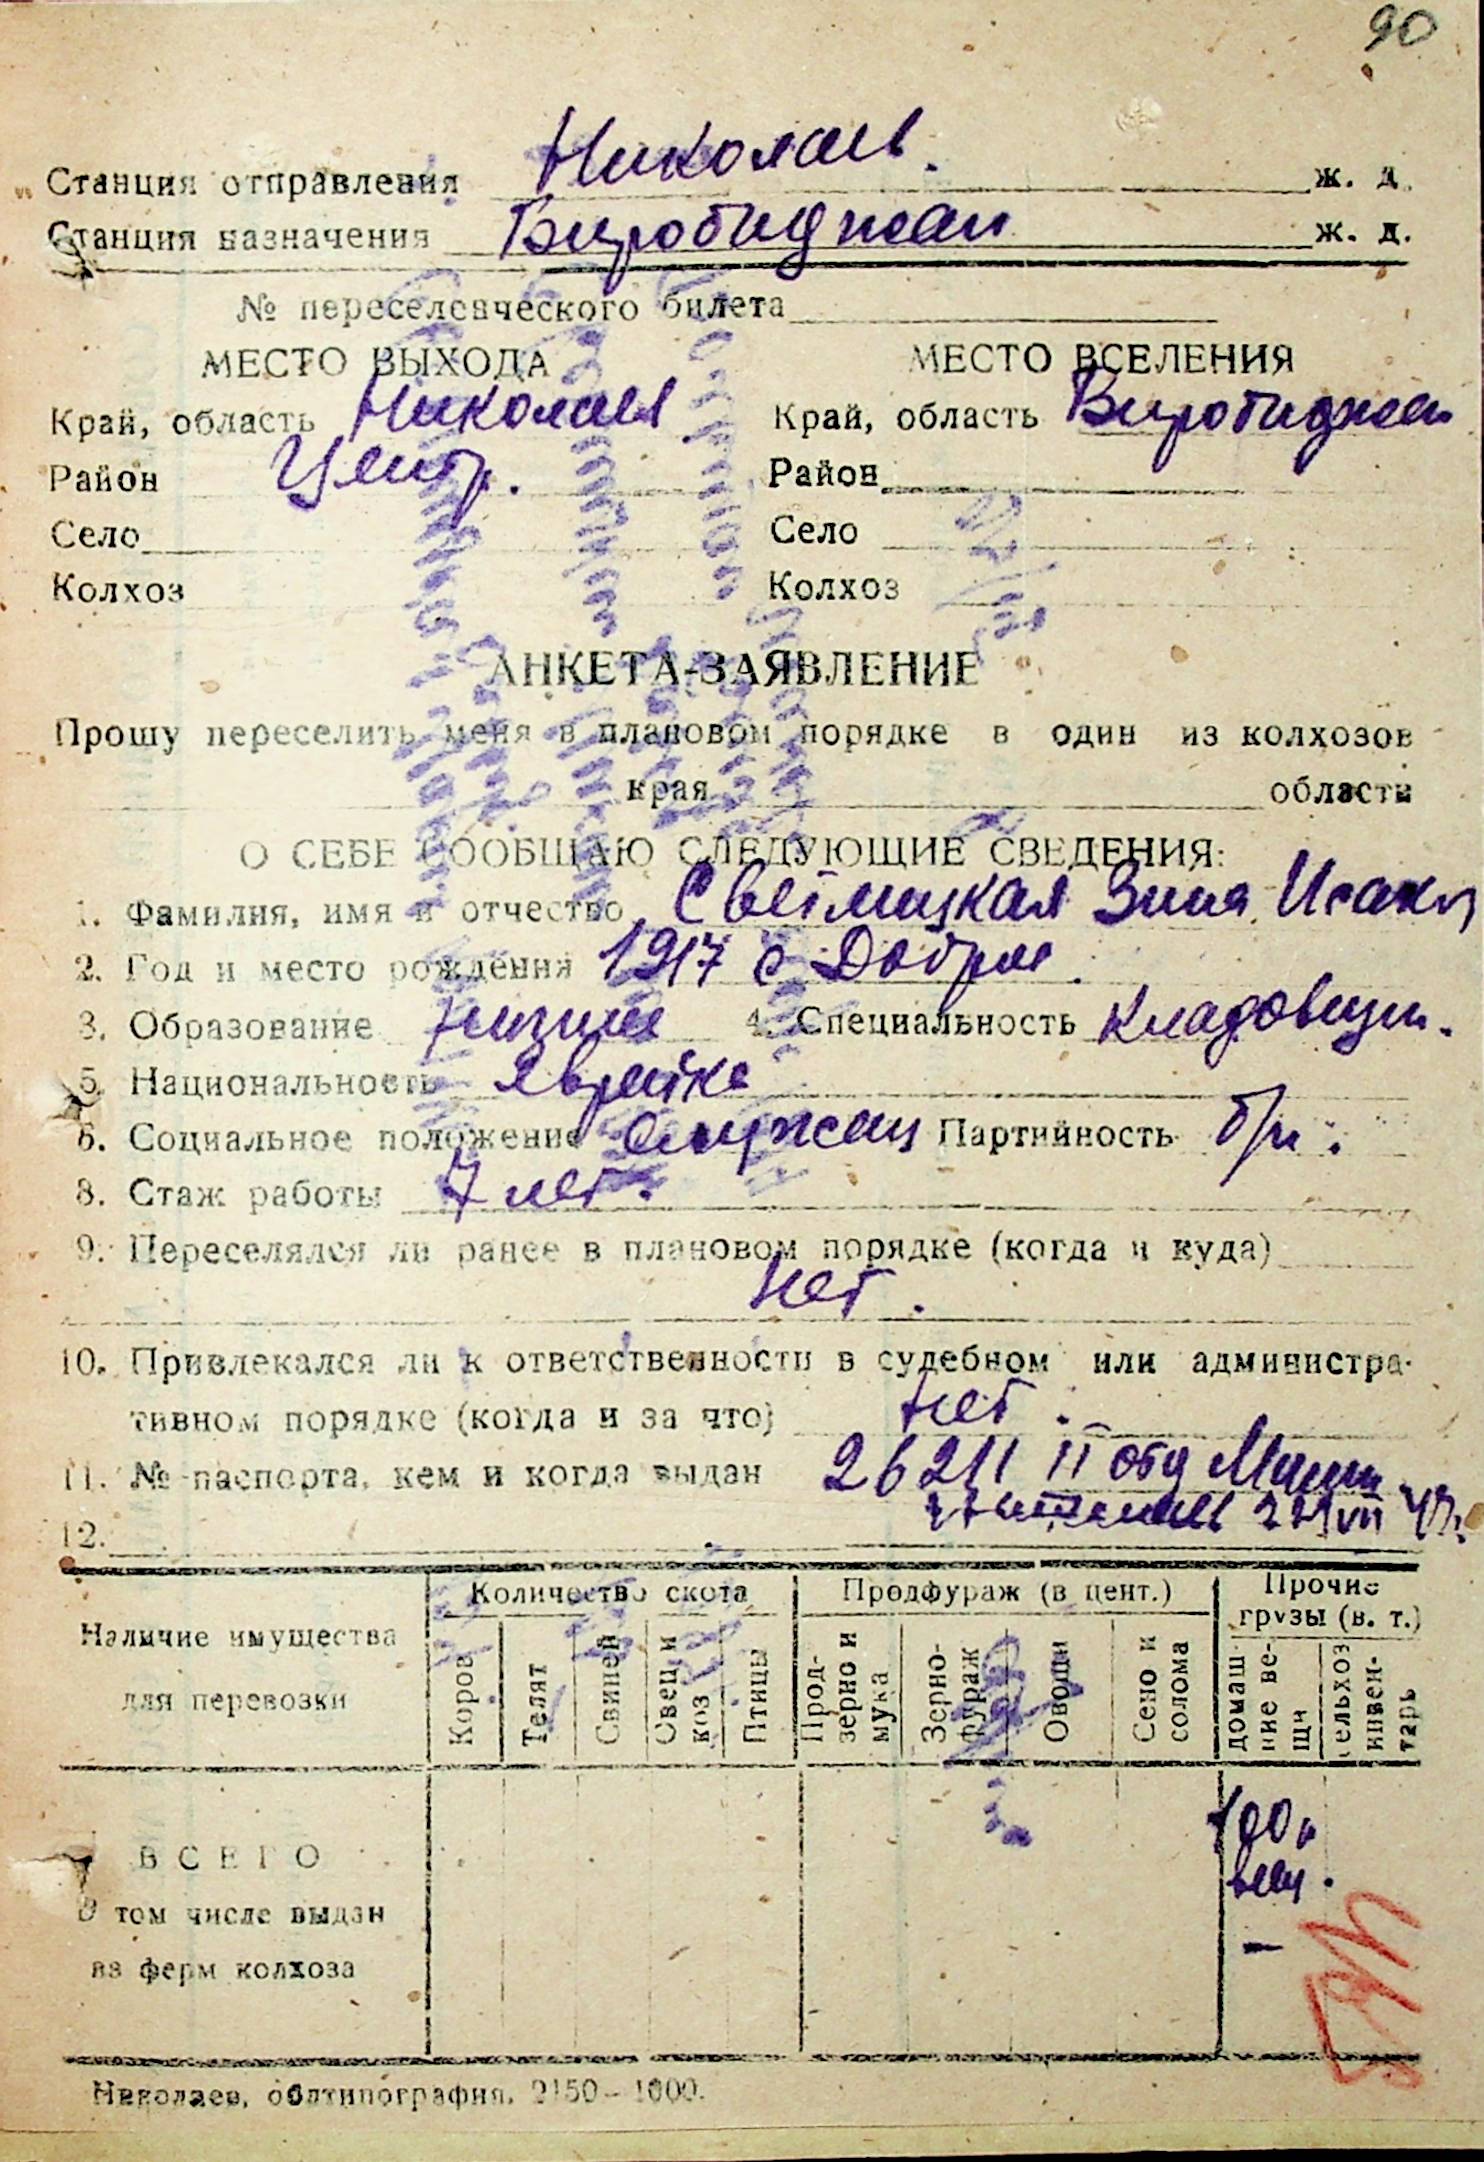 90
Станция отправления Николаев. ж. д.
Станция назначения Биробиджан ж. д.
№ переселенческого билета
МЕСТО ВЫХОДА МЕСТО ВСЕЛЕНИЯ
Край, область Николаев Край, область Биробиджан
Район Центр. Район
Село Село
Колхоз Колхоз
АНКЕТА-ЗАЯВЛЕНИЕ
Прошу переселить меня в плановом порядке в один из колхозов
края области
О СЕБЕ СООБЩАЮ СЛЕДУЮЩИЕ СВЕДЕНИЯ:
1. Фамилия, имя и отчество Светлицкая Зина Исаак
2. Год и место рождения 1917 с Доброе
3. Образование низшее 4. Специальность Кладовщи.
5. Национальность Еврейка
6. Социальное положение служащ Партийность б/п.
8. Стаж работы 7 лет.
9. Переселялся ли ранее в плановом порядке (когда и куда)
нет.
10. Привлекался ли к ответственности в судебном или администра-
тивном порядке (когда и за что) нет.
11. № паспорта, кем и когда выдан 26211 II отд Мили
27/VII 47.
12.
Наличие имущества для перевозки
Количество скота Продфураж (в цент.) Прочие грузы (в. т.)
Коров Телят Свиней Овец и коз Птицы Прод-зерно и мука Зерно-фураж Овощи Сено и солома домаш-ние ве-щи сельхоз инвен-тарь
ВСЕГО 100 к
вещ.
В том числе выдан
из ферм колхоза –
Николаев, облтипография. 2150–1000.